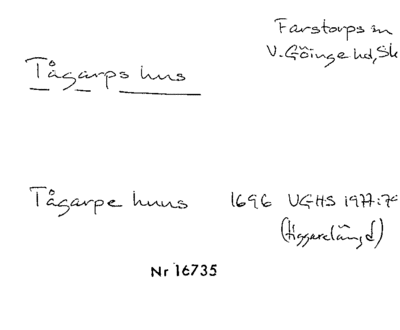 Farstorps sn
V. Göinge hd, Sk
Tågarps hus
Tågarpe huus 1696 VGHS 1977:70
(tiggarelängd)
Nr 16735